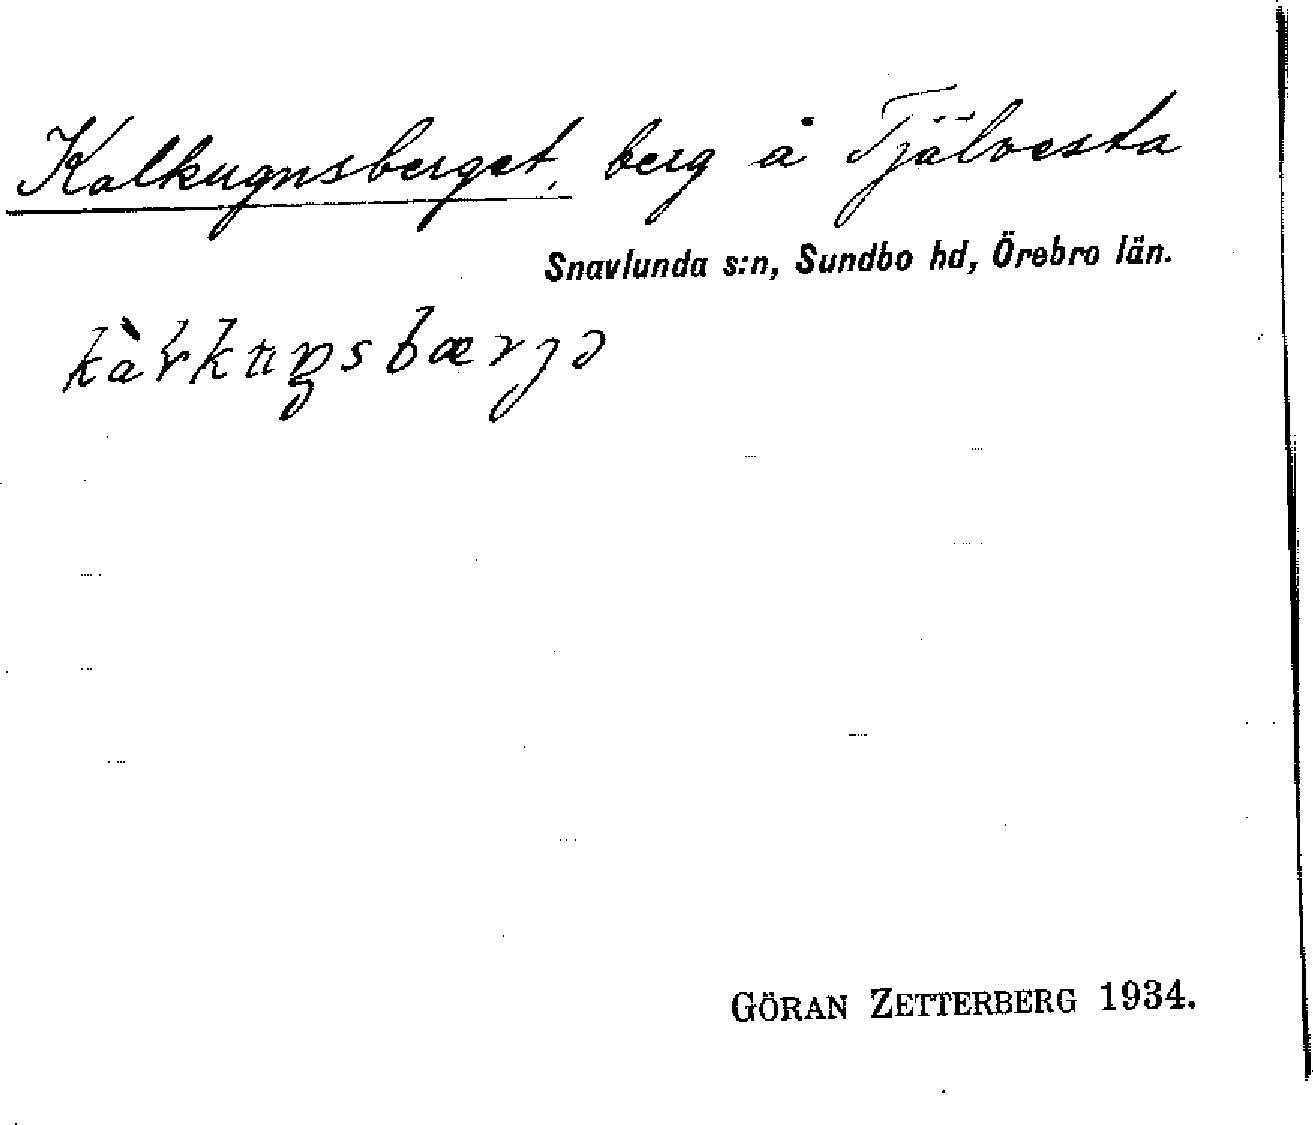 Kalkugnsberget, berg å Tjälvesta
Snavlunda s:n, Sundbo hd, Örebro län.
GÖRAN ZETTERBERG 1934.